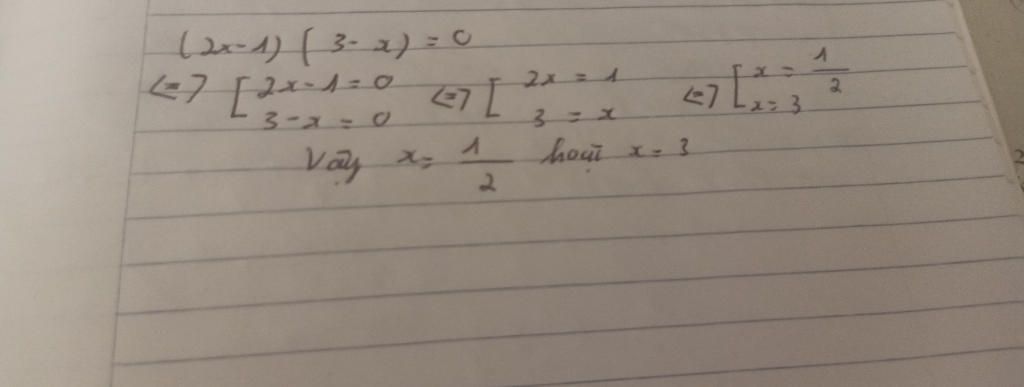 (2x-1)(3-x)=0
<=> [2x-1=0 <=> [2x=1 <=> [x=1/2
3-x=0 3=x x=3
Vậy x=1/2 hoặc x=3